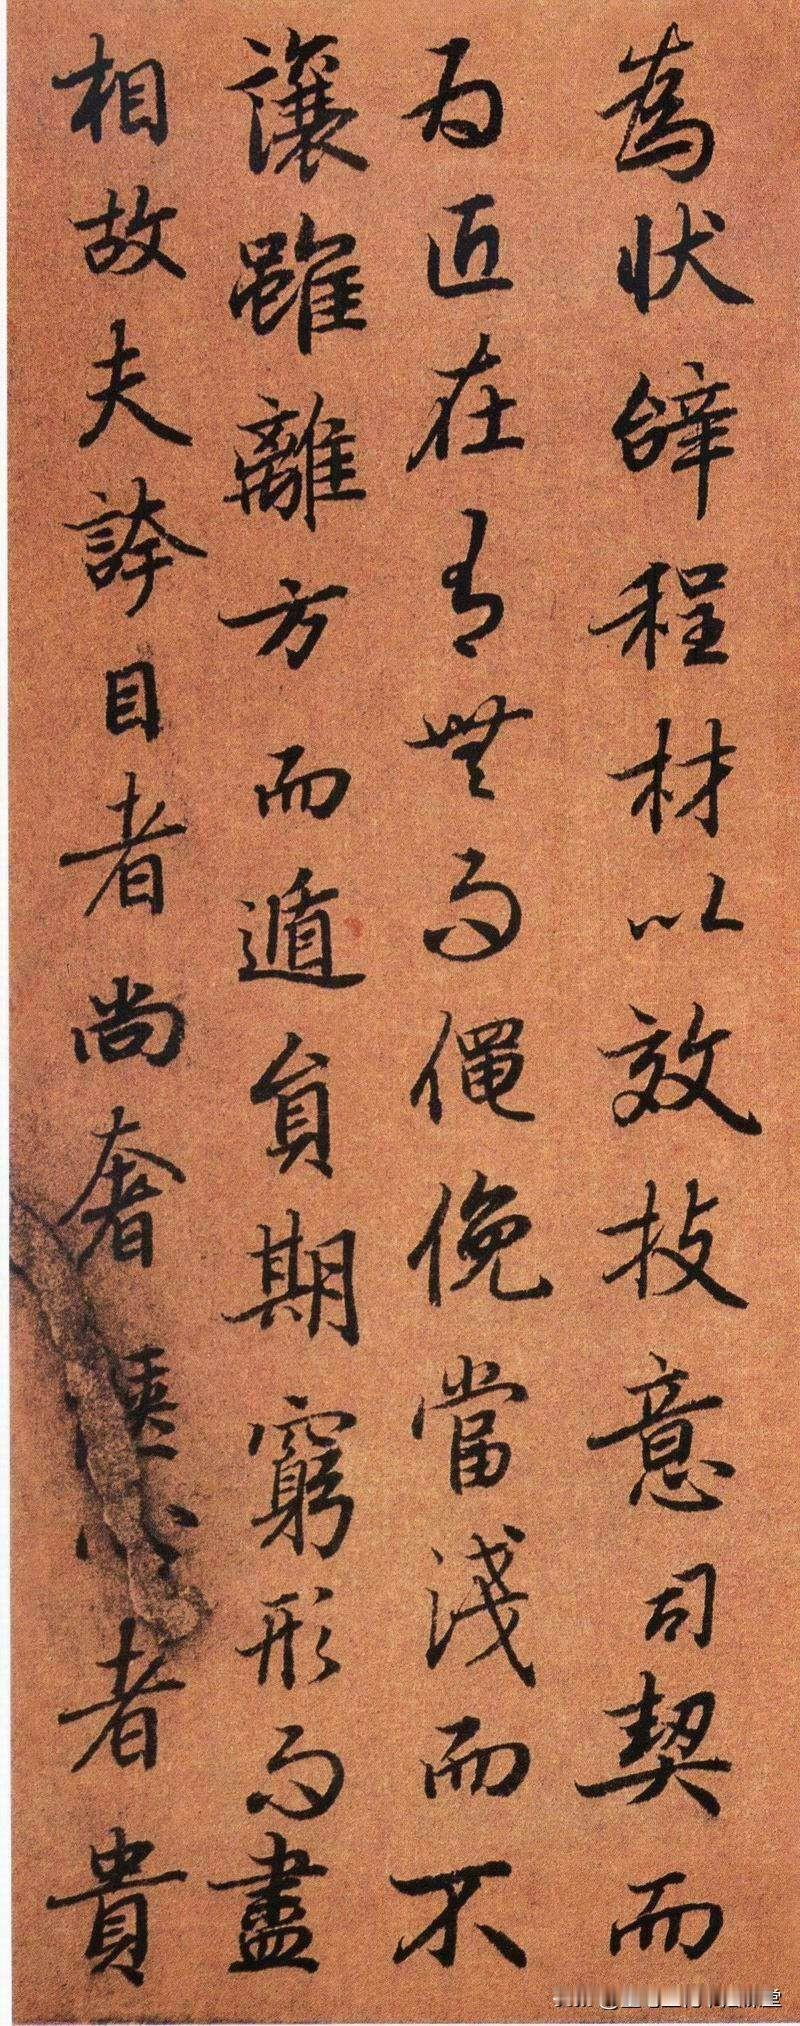 為狀辭程材以效技意司契而
為匠在有無而僶俛當淺而不
讓雖離方而遁員期窮形而盡
相故夫誇目者尚奢心者貴